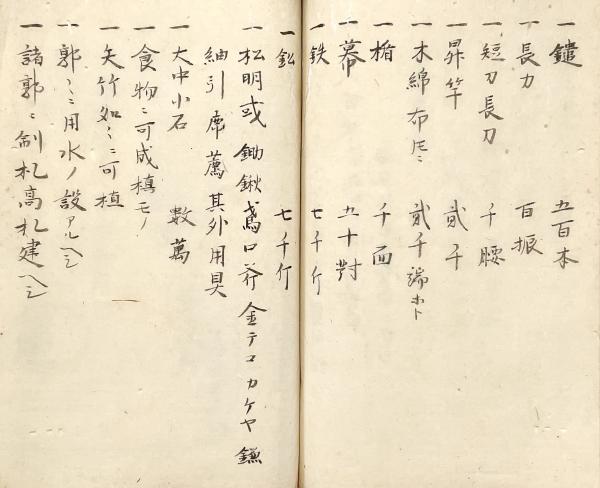 一 鑓 五百本
一 長刀 百振
一 短刀長刀 千腰
一 昇竿 貳千
一 木綿布 貳千端ホト
一 楯 千面
一 幕 五十對
一 鉄 七千斤
一 鉛 七千斤
一 松明或鋤鍬鳶口斧金テコカケヤ鎌
紬引席薦其外用具
一 大中小石 數萬
一 食物ニ可成植モノ
一 矢竹如ミニ可植
一 郭ミニ用水ノ設アルヘシ
一 諸郭ニ制札高札建ヘシ